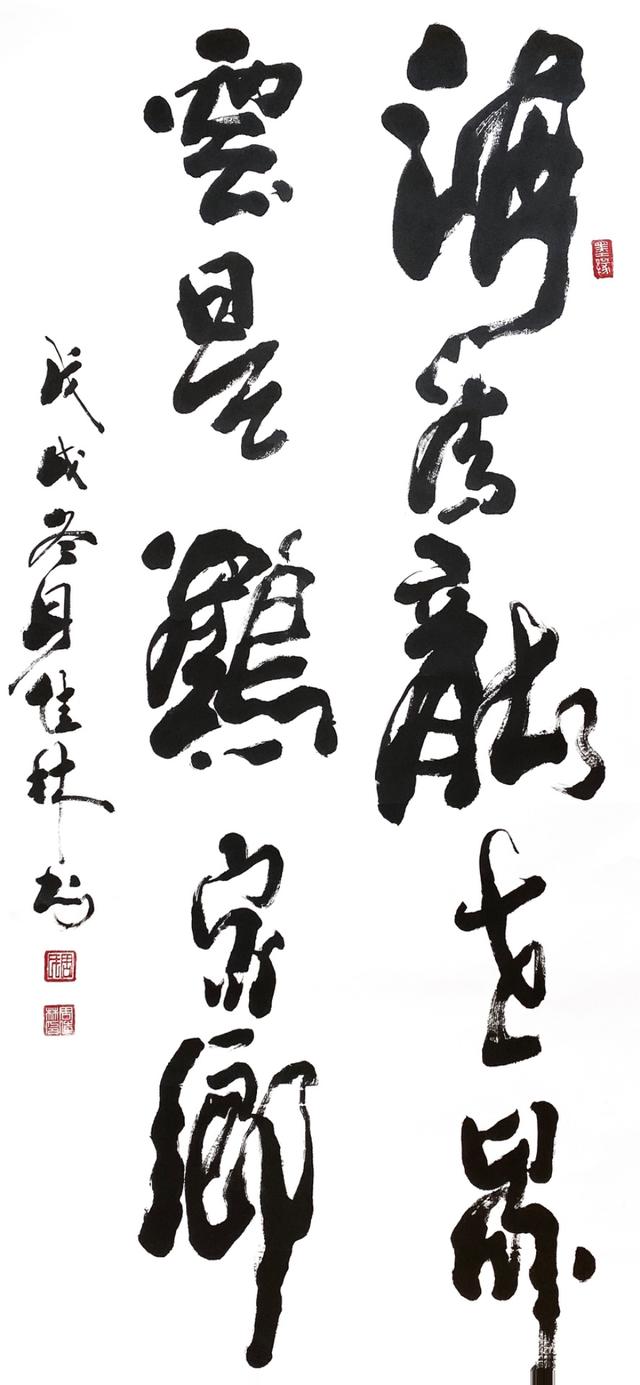 海為龍世界
雲是鶴家鄉
戊戌冬月佳林书
墨缘